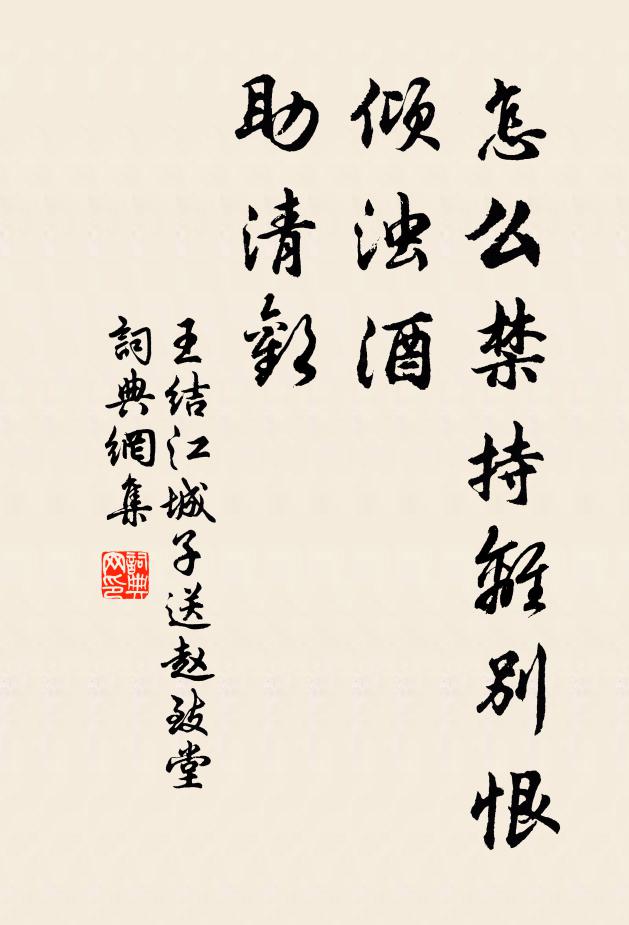 怎么禁持離別恨
倾浊酒
助清歡
王结江城子送赵致堂
詞典網集
詞典网印